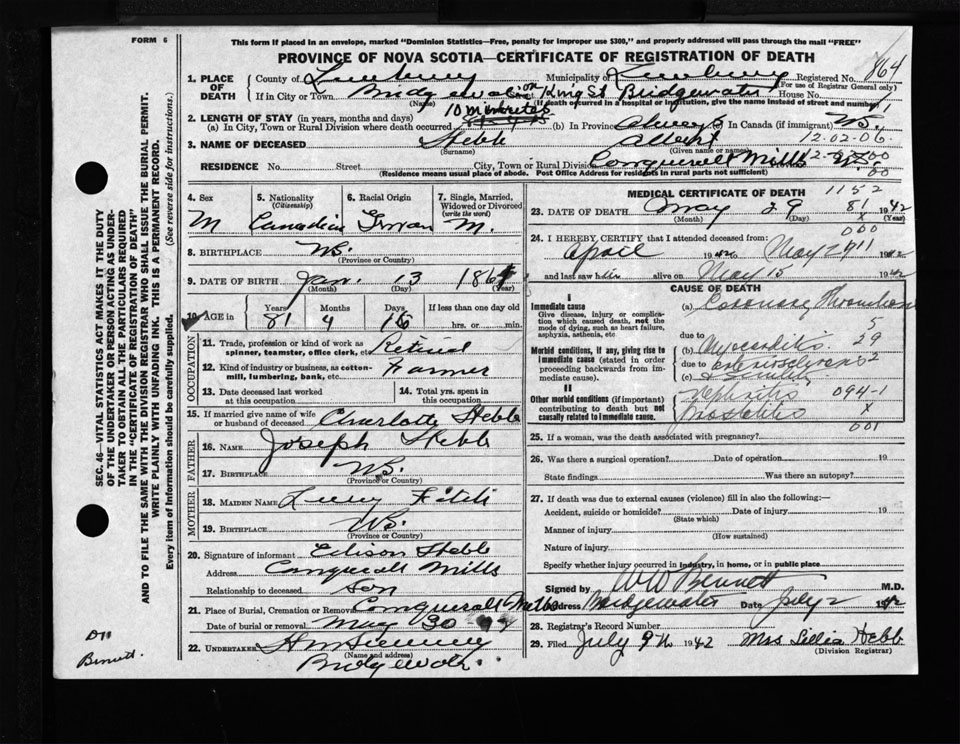 FORM 6
This form if placed in an envelope, marked "Dominion Statistics—Free, penalty for improper use $300," and properly addressed will pass through the mail "FREE"
PROVINCE OF NOVA SCOTIA—CERTIFICATE OF REGISTRATION OF DEATH
1. PLACE OF DEATH County of Lunenburg Municipality of Lunenburg Registered No. 864
(For use of Registrar General only)
If in City or Town Bridgewater or King St Bridgewater House No.
(Name) (If death occurred in a hospital or institution, give name instead of street and number)
2. LENGTH OF STAY (in years, months and days)
(a) In City, Town or Rural Division where death occurred 10 minutes (b) In Province Always (c) In Canada (if immigrant)
3. NAME OF DECEASED Hebb Albert 12-02-06
(Surname) (Given name or names)
RESIDENCE No. Street City, Town or Rural Division Conquerall Mills
(Residence means usual place of abode. Post Office Address for residents in rural parts not sufficient)
4. Sex M
5. Nationality (Citizenship) Canadian
6. Racial Origin German
7. Single, Married, Widowed or Divorced (write the word) M.
8. BIRTHPLACE N.S.
(Province or Country)
9. DATE OF BIRTH Jan. 13 1861
(Month) (Day) (Year)
10. AGE in Years Months Days If less than one day old
81 4 16 hrs. or min.
OCCUPATION
11. Trade, profession or kind of work as spinner, teamster, office clerk, etc. Retired
12. Kind of industry or business, as cotton-mill, lumbering, bank, etc. Farmer
13. Date deceased last worked at this occupation
14. Total yrs. spent in this occupation
15. If married give name of wife or husband of deceased Charlotte Hebb
FATHER
16. Name Joseph Hebb
17. Birthplace N.S.
(Province or Country)
MOTHER
18. Maiden Name Lucy
19. Birthplace N.S.
(Province or Country)
20. Signature of informant Edison Hebb
Address Conquerall Mills
Relationship to deceased Son
21. Place of Burial, Cremation or Removal Conquerall Mills
Date of burial or removal May 30
22. UNDERTAKER
(Name and address)
Bridgewater
MEDICAL CERTIFICATE OF DEATH 1152
23. DATE OF DEATH May 29 81 1942
(Month) (Day) (Year)
X
000
24. I HEREBY CERTIFY that I attended deceased from:
April 1942 to May 29 1942
and last saw him alive on May 15 1942
CAUSE OF DEATH
I
Immediate cause
Give disease, injury or complication which caused death, not the mode of dying, such as heart failure, asphyxia, asthenia, etc
(a) Coronary Thrombosis
5
due to
Morbid conditions, if any, giving rise to immediate cause (stated in order proceeding backwards from immediate cause).
(b) Myocarditis 29
due to Arteriosclerosis 2
(c) & Senility
II
Other morbid conditions (if important) contributing to death but not causally related to immediate cause.
Nephritis 094-1
Prostatitis X
001
25. If a woman, was the death associated with pregnancy?
26. Was there a surgical operation? Date of operation 19
State findings Was there an autopsy?
27. If death was due to external causes (violence) fill in also the following:—
Accident, suicide or homicide? Date of injury 19
(State which)
Manner of injury
(How sustained)
Nature of injury
Specify whether injury occurred in industry, in home, or in public place
Signed by W W Bennett M.D.
Address Bridgewater Date July 2 1942
28. Registrar's Record Number
29. Filed July 9th 1942 Mrs Lellia Hebb
(Division Registrar)
SEC. 46—VITAL STATISTICS ACT MAKES IT THE DUTY OF THE UNDERTAKER OR PERSON ACTING AS UNDERTAKER TO OBTAIN ALL THE PARTICULARS REQUIRED IN THE "CERTIFICATE OF REGISTRATION OF DEATH"
AND TO FILE THE SAME WITH THE DIVISION REGISTRAR WHO SHALL ISSUE THE BURIAL PERMIT.
WRITE PLAINLY WITH UNFADING INK. THIS IS A PERMANENT RECORD.
Every item of Information should be carefully supplied. (See reverse side for instructions.)
Dr
Bennett.